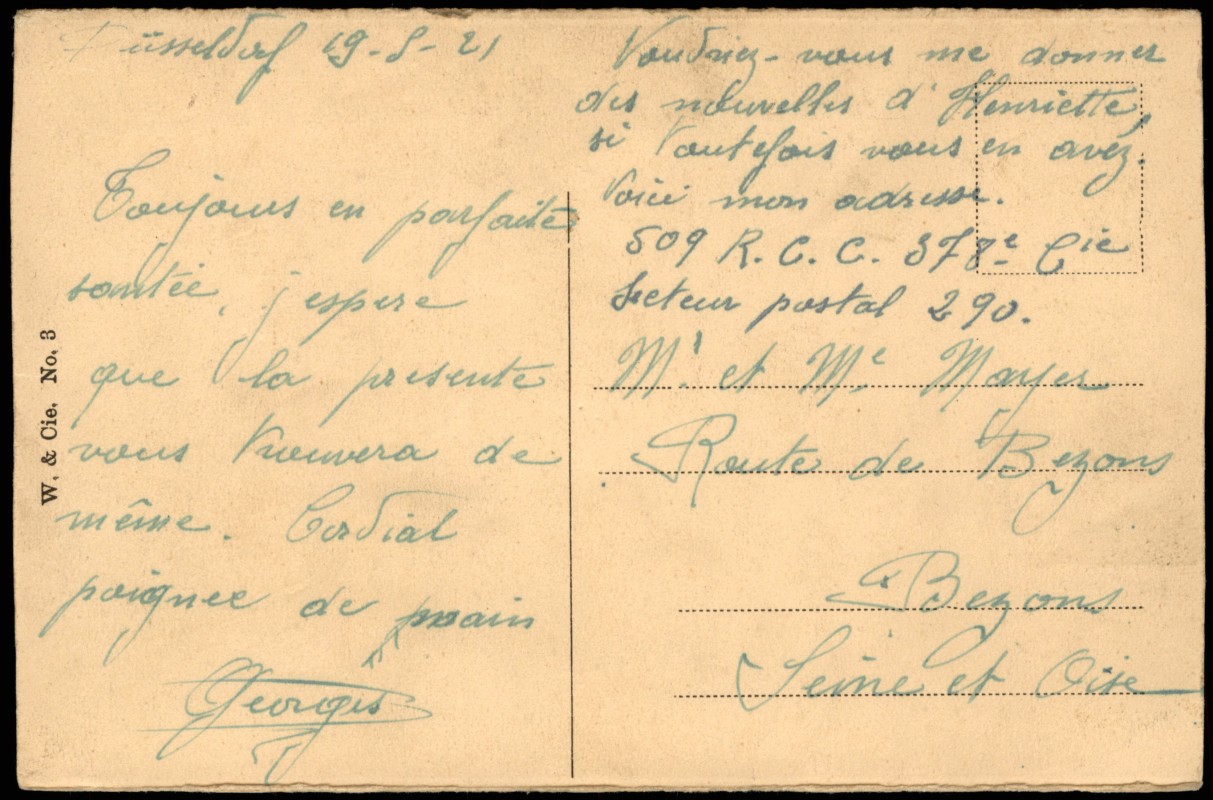 Düsseldorf 19-5-21
Toujours en parfaite
santée, j espere
que la presente
vous trouvera de
même. Cordial
poignee de main
Georges
Voudriez-vous me donner
des nouvelles d'Henriette,
si toutefois vous en avez.
Voici mon adresse.
509 R. C. C. 378e Cie
Secteur postal 290.
Mr. et Me Mayer
Route de Bezons
Bezons
Seine et Oise
W. & Cie. No. 3